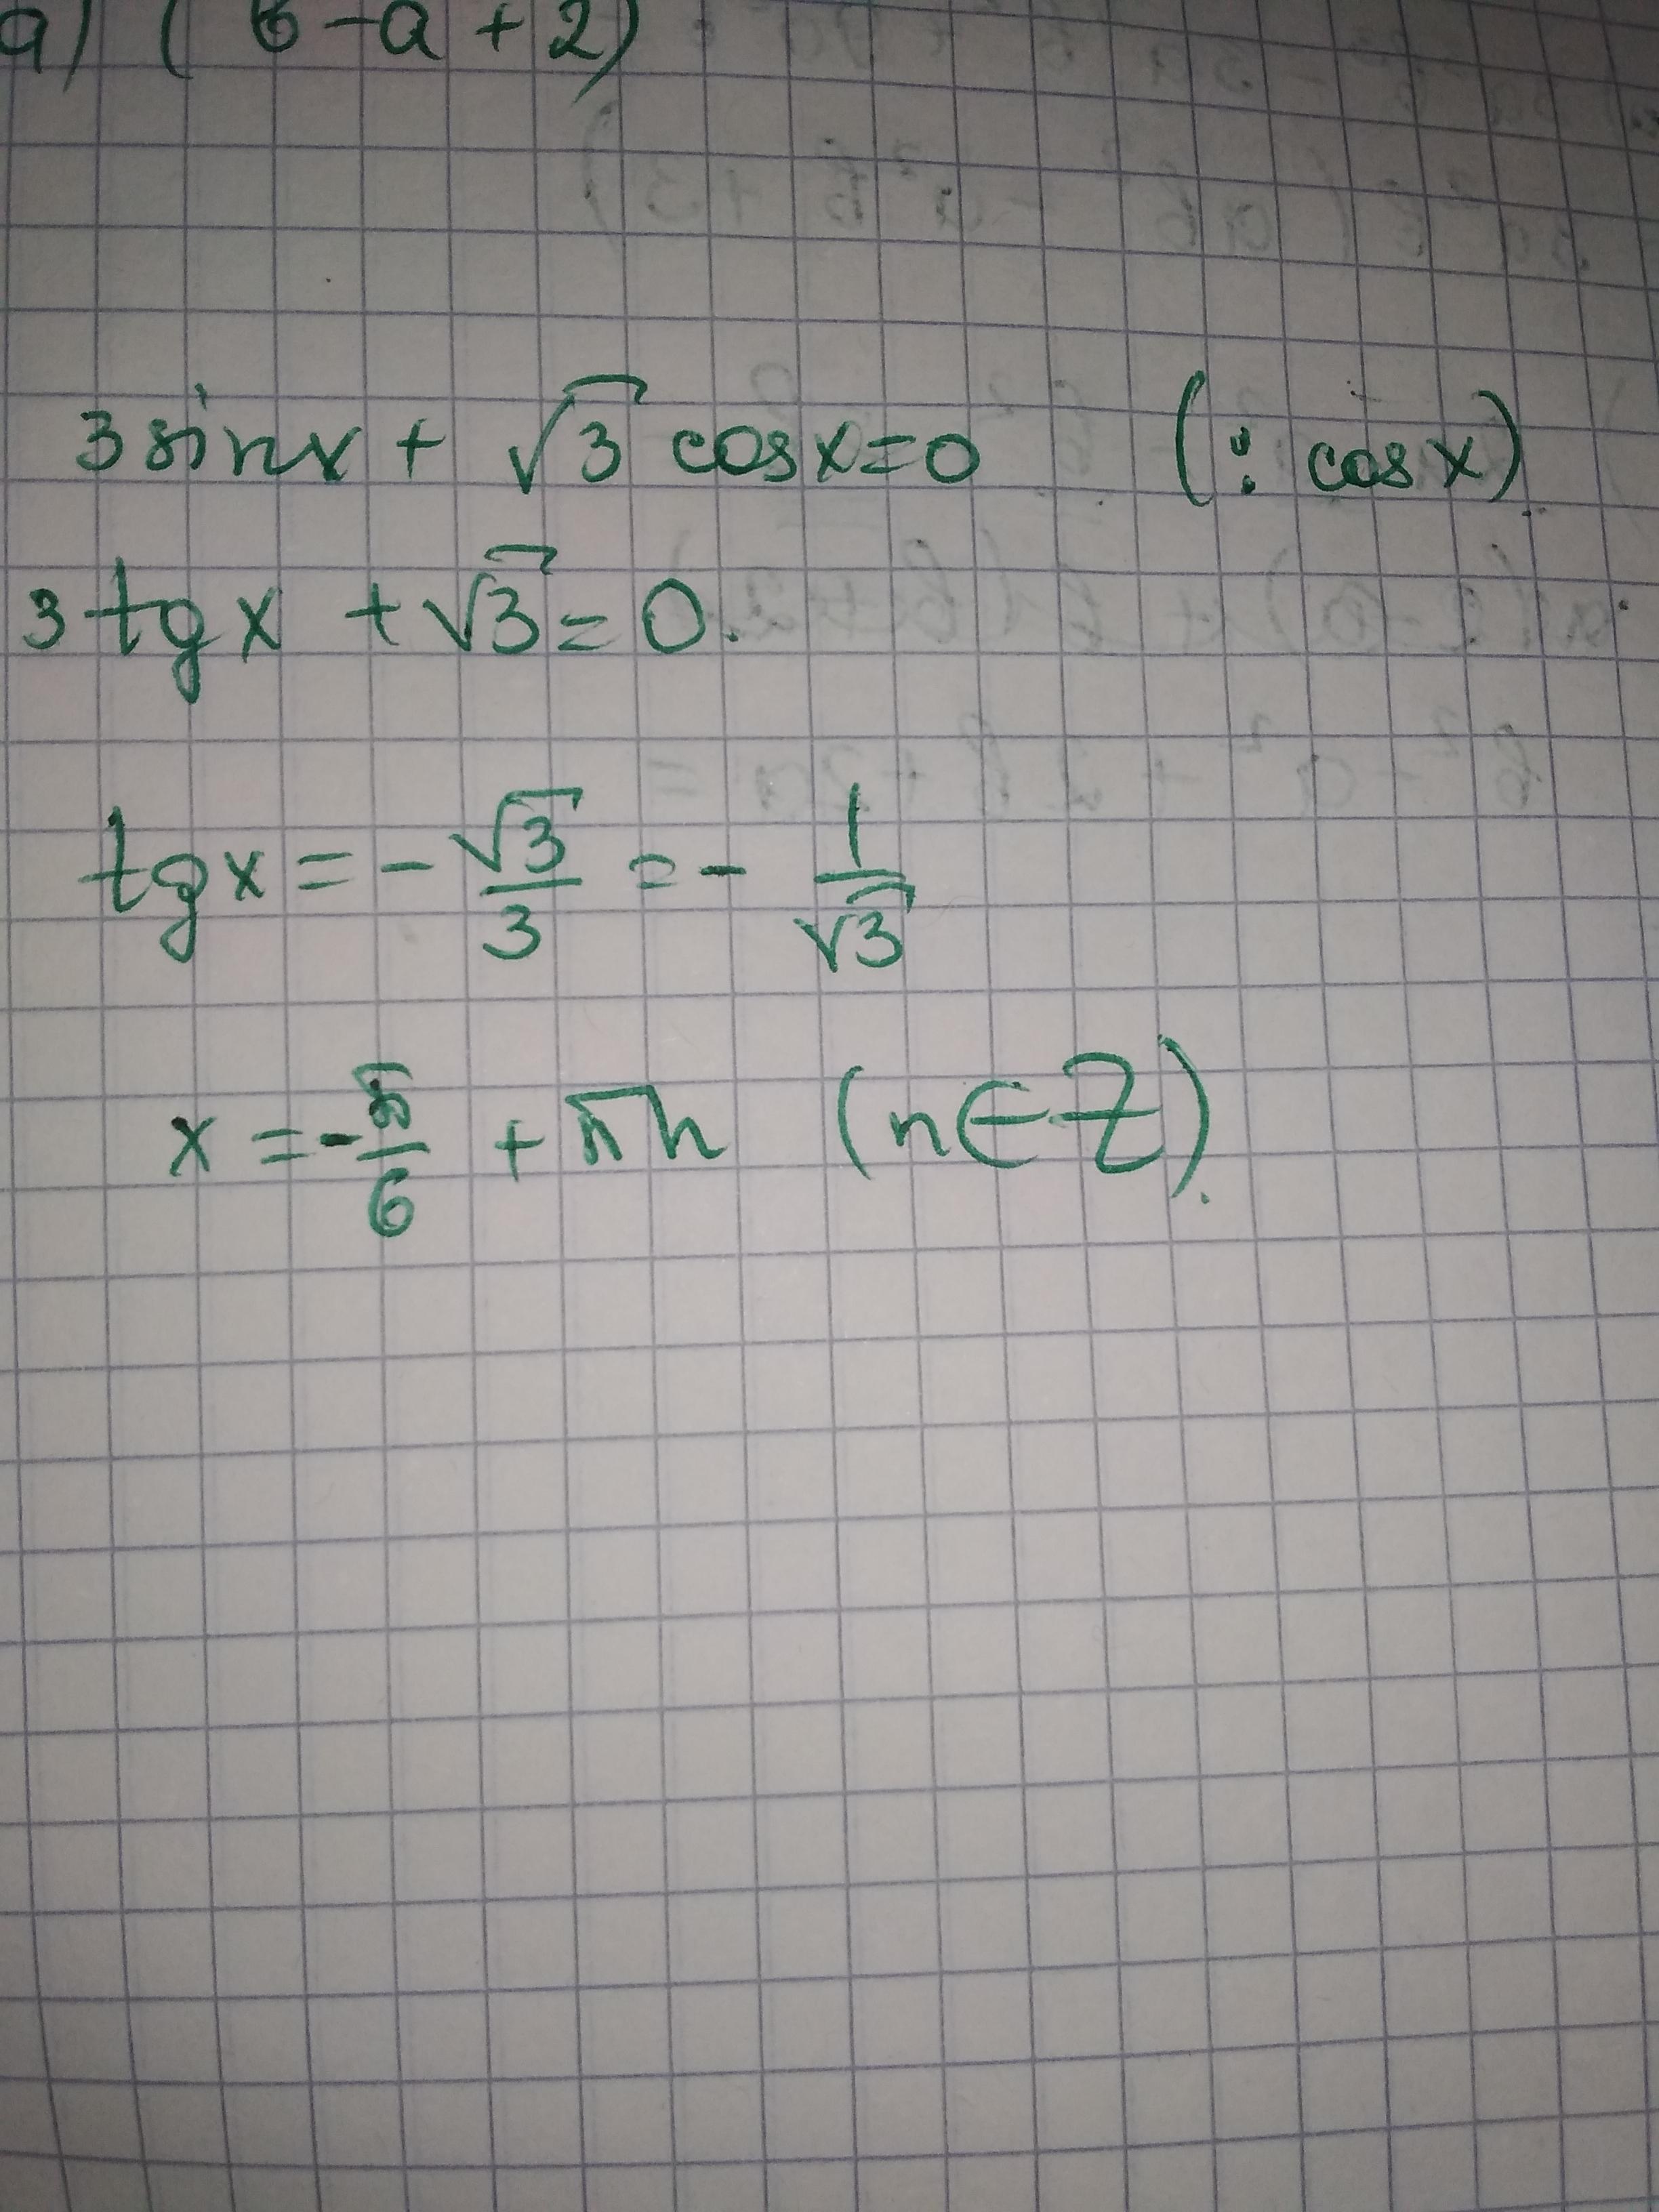 a) (b-a+2)
3 sin x + √3 cos x = 0 (: cos x)
3 tg x + √3 = 0.
tg x = - √3/3 = - 1/√3
x = - π/6 + πn (n ∈ Z).